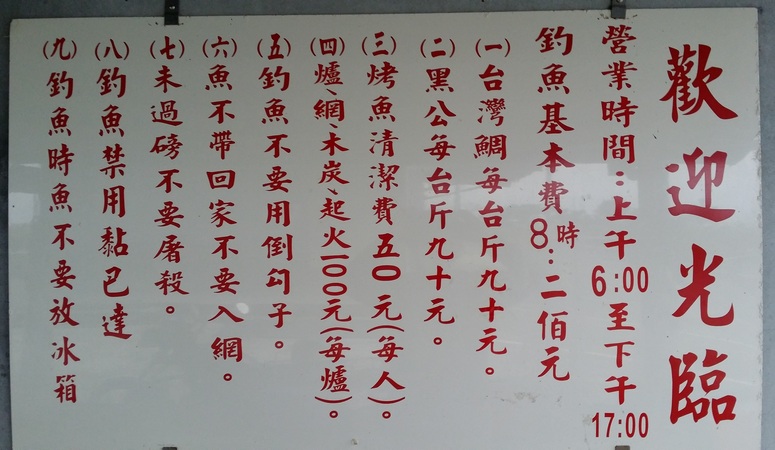 歡迎光臨
營業時間:上午6:00至下午17:00
釣魚基本費8時:二佰元
(一)台灣鯛每台斤九十元。
(二)黑公每台斤九十元。
(三)烤魚清潔費五0元(每人)。
(四)爐、網、木炭、起火一00元(每爐)。
(五)釣魚不要用倒勾子。
(六)魚不帶回家不要入網。
(七)未過磅不要屠殺。
(八)釣魚禁用黏巴達
(九)釣魚時魚不要放冰箱